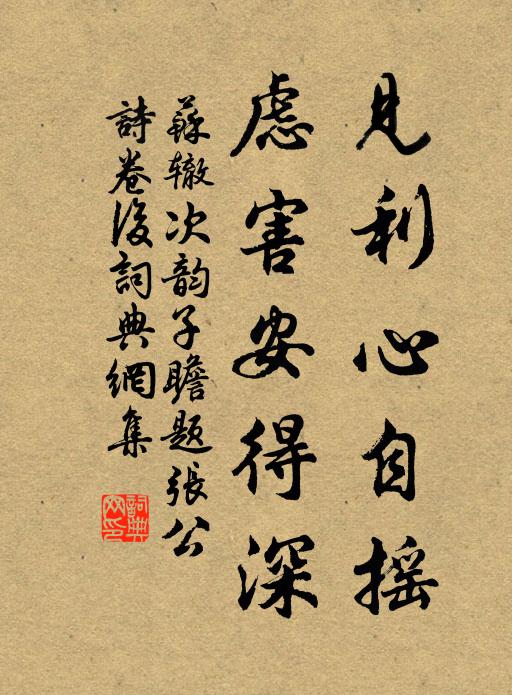 見利心自摇
慮害安得深
蘇辙次韵子瞻题張公
詩卷後詞典網集
詞典
网印